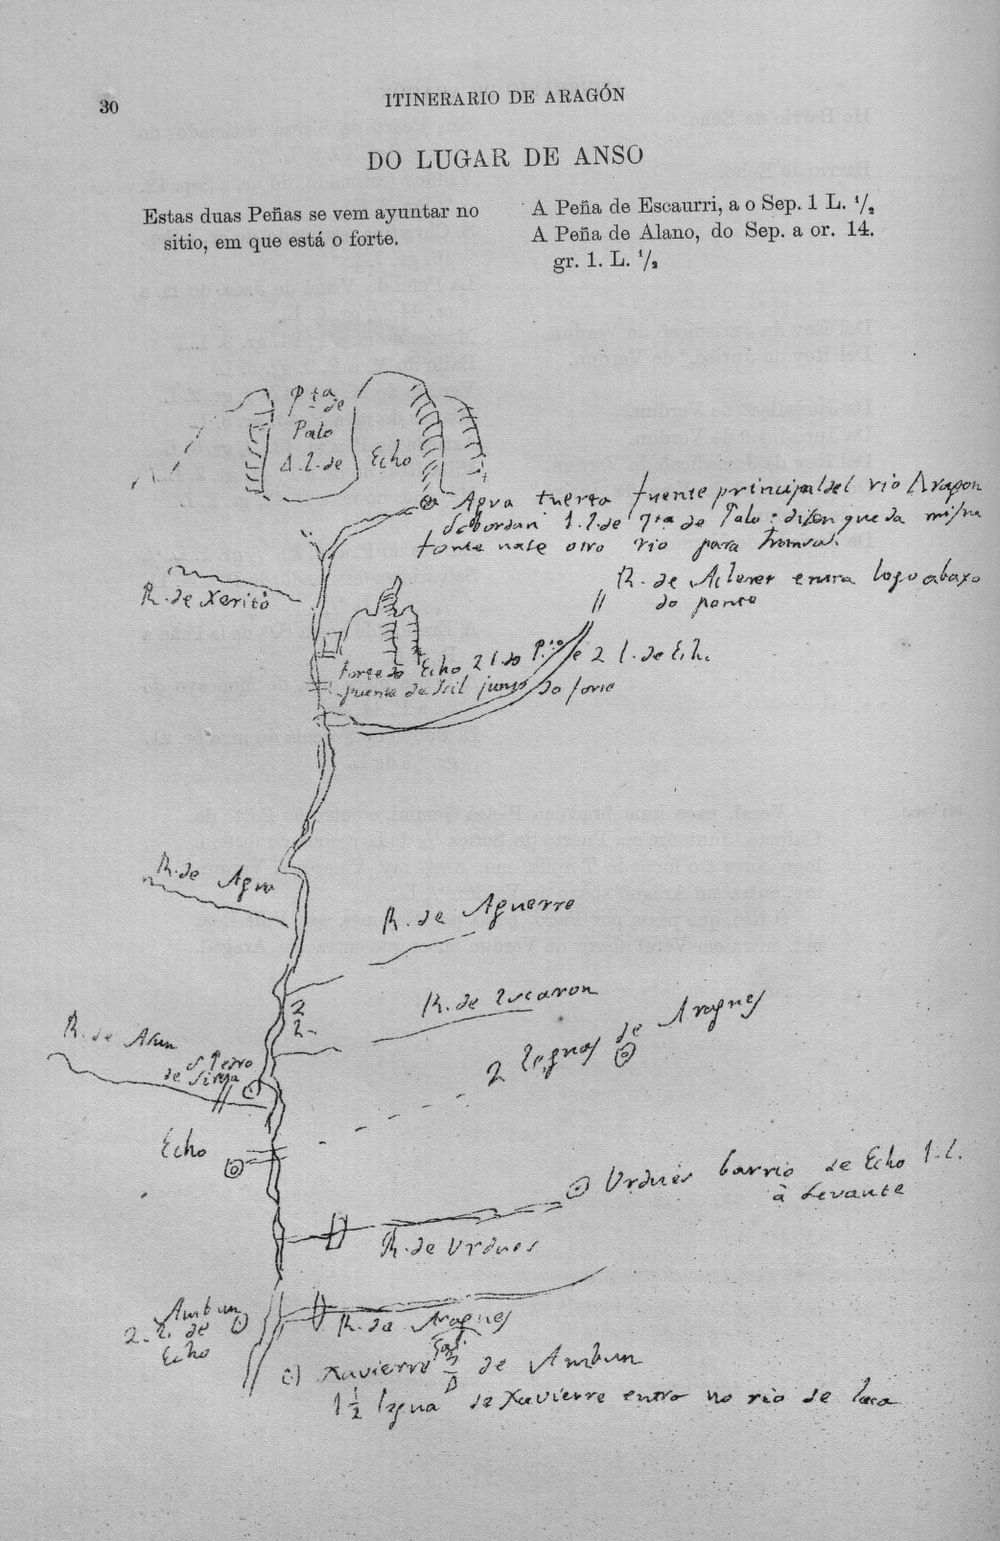 30
ITINERARIO DE ARAGÓN
DO LUGAR DE ANSO
Estas duas Peñas se vem ayuntar no
sitio, em que está o forte.
A Peña de Escaurri, a o Sep. 1 L. 1/2
A Peña de Alano, do Sep. a or. 14.
gr. 1. L. 1/2
Pta
de
Palo
1.l.de Echo
Agua tuerta fuente principal del rio Aragon
1.l.de Pta de Palo: dizen que da misma
fonte nase otro rio para
R. de Xerito
R. de Aclerer entra logo abaxo
do ponte
forte do Echo 2 l do Pto e 2 l. de Echo
puente da Sil junto do forte
R. de Agua
R. de Aguerre
2
L.
R. de lucaron
R. de Asun
S Pedro
de Siresa
2 leguas de Aragues
Echo
Urdues barrio de Echo 1.l.
à Levante
R. de Urdues
Ambun
2.l. de
Echo
R. de Aragues
Xavierre de Ambun
1 1/2 legua de Xavierre entra no rio de Iaca